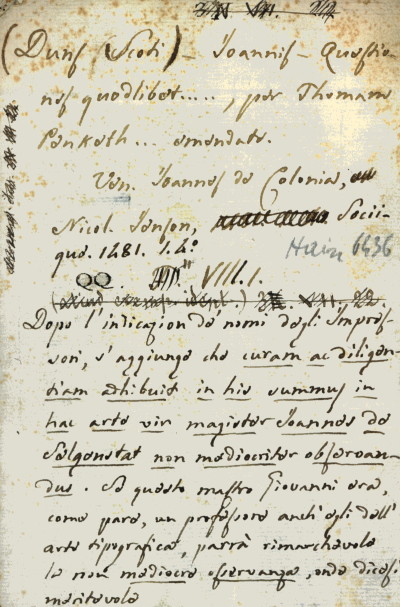 (Duns Scoti) – Joannis – Questio-
nes quodlibet....., per Thomam
Penketh... emendate.
Ven. Joannes de Colonia,
Nicol. Jenson, Socii-
que. 1481. f. 4.º
Hain 6436
QQ. VIII. 1.
Dopo l'indicazion de' nomi degli Impres-
sori, s'aggiunge che curam ac diligen-
tiam adhibuit in his summus in
hac arte vir magister Joannes de
Selgenstat non mediocriter observan-
dus. Se questo mastro Giovanni era,
come pare, un professore anch'egli dell'
arte tipografica, parrà rimarchevole
la non mediocre observanza, onde dicesi
meritevole